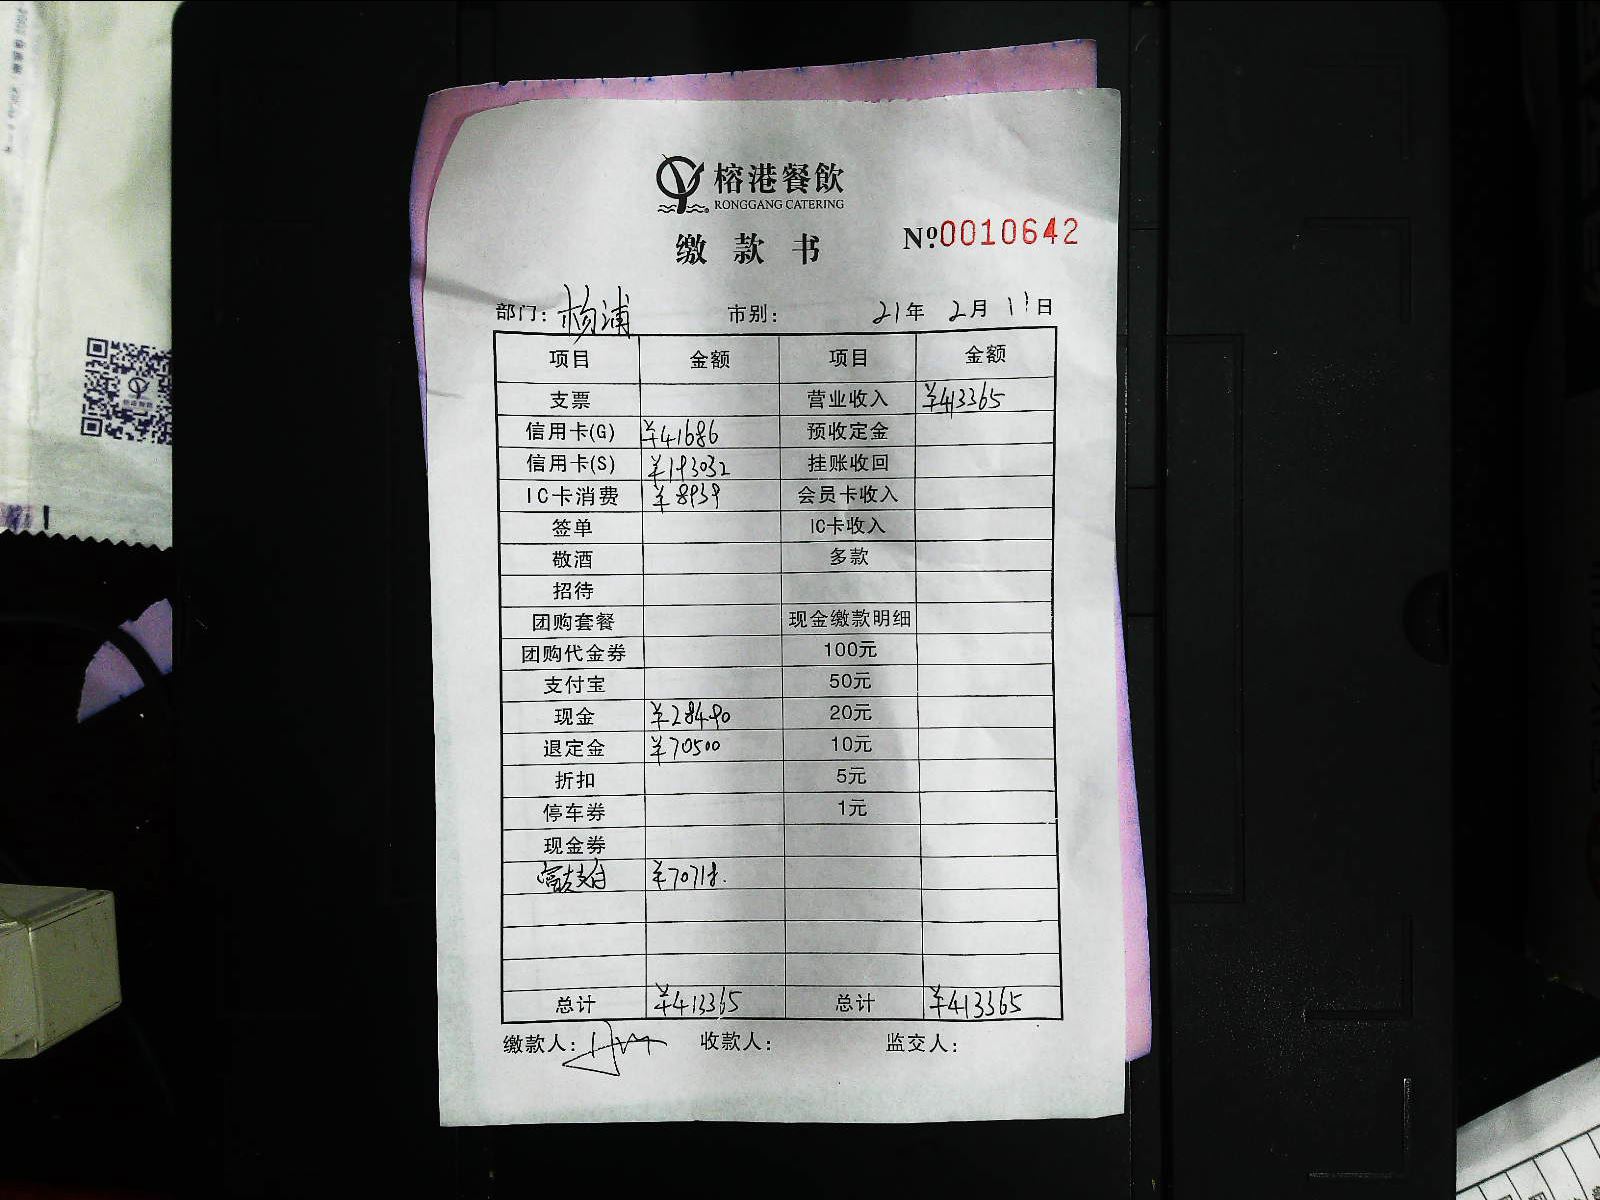 榕港餐飲
RONGGANG CATERING
缴款书 Nº0010642
部门: 杨浦 市别: 21年 2月 11日
项目 金额 项目 金额
支票 营业收入 ¥413365
信用卡(G) ¥41686 预收定金
信用卡(S) ¥193032 挂账收回
IC卡消费 ¥8939 会员卡收入
签单 IC卡收入
敬酒 多款
招待
团购套餐 现金缴款明细
团购代金券 100元
支付宝 50元
现金 ¥28490 20元
退定金 ¥70500 10元
折扣 5元
停车券 1元
现金券
富友支付 ¥70718.
总计 ¥413365 总计 ¥413365
缴款人: 收款人: 监交人: